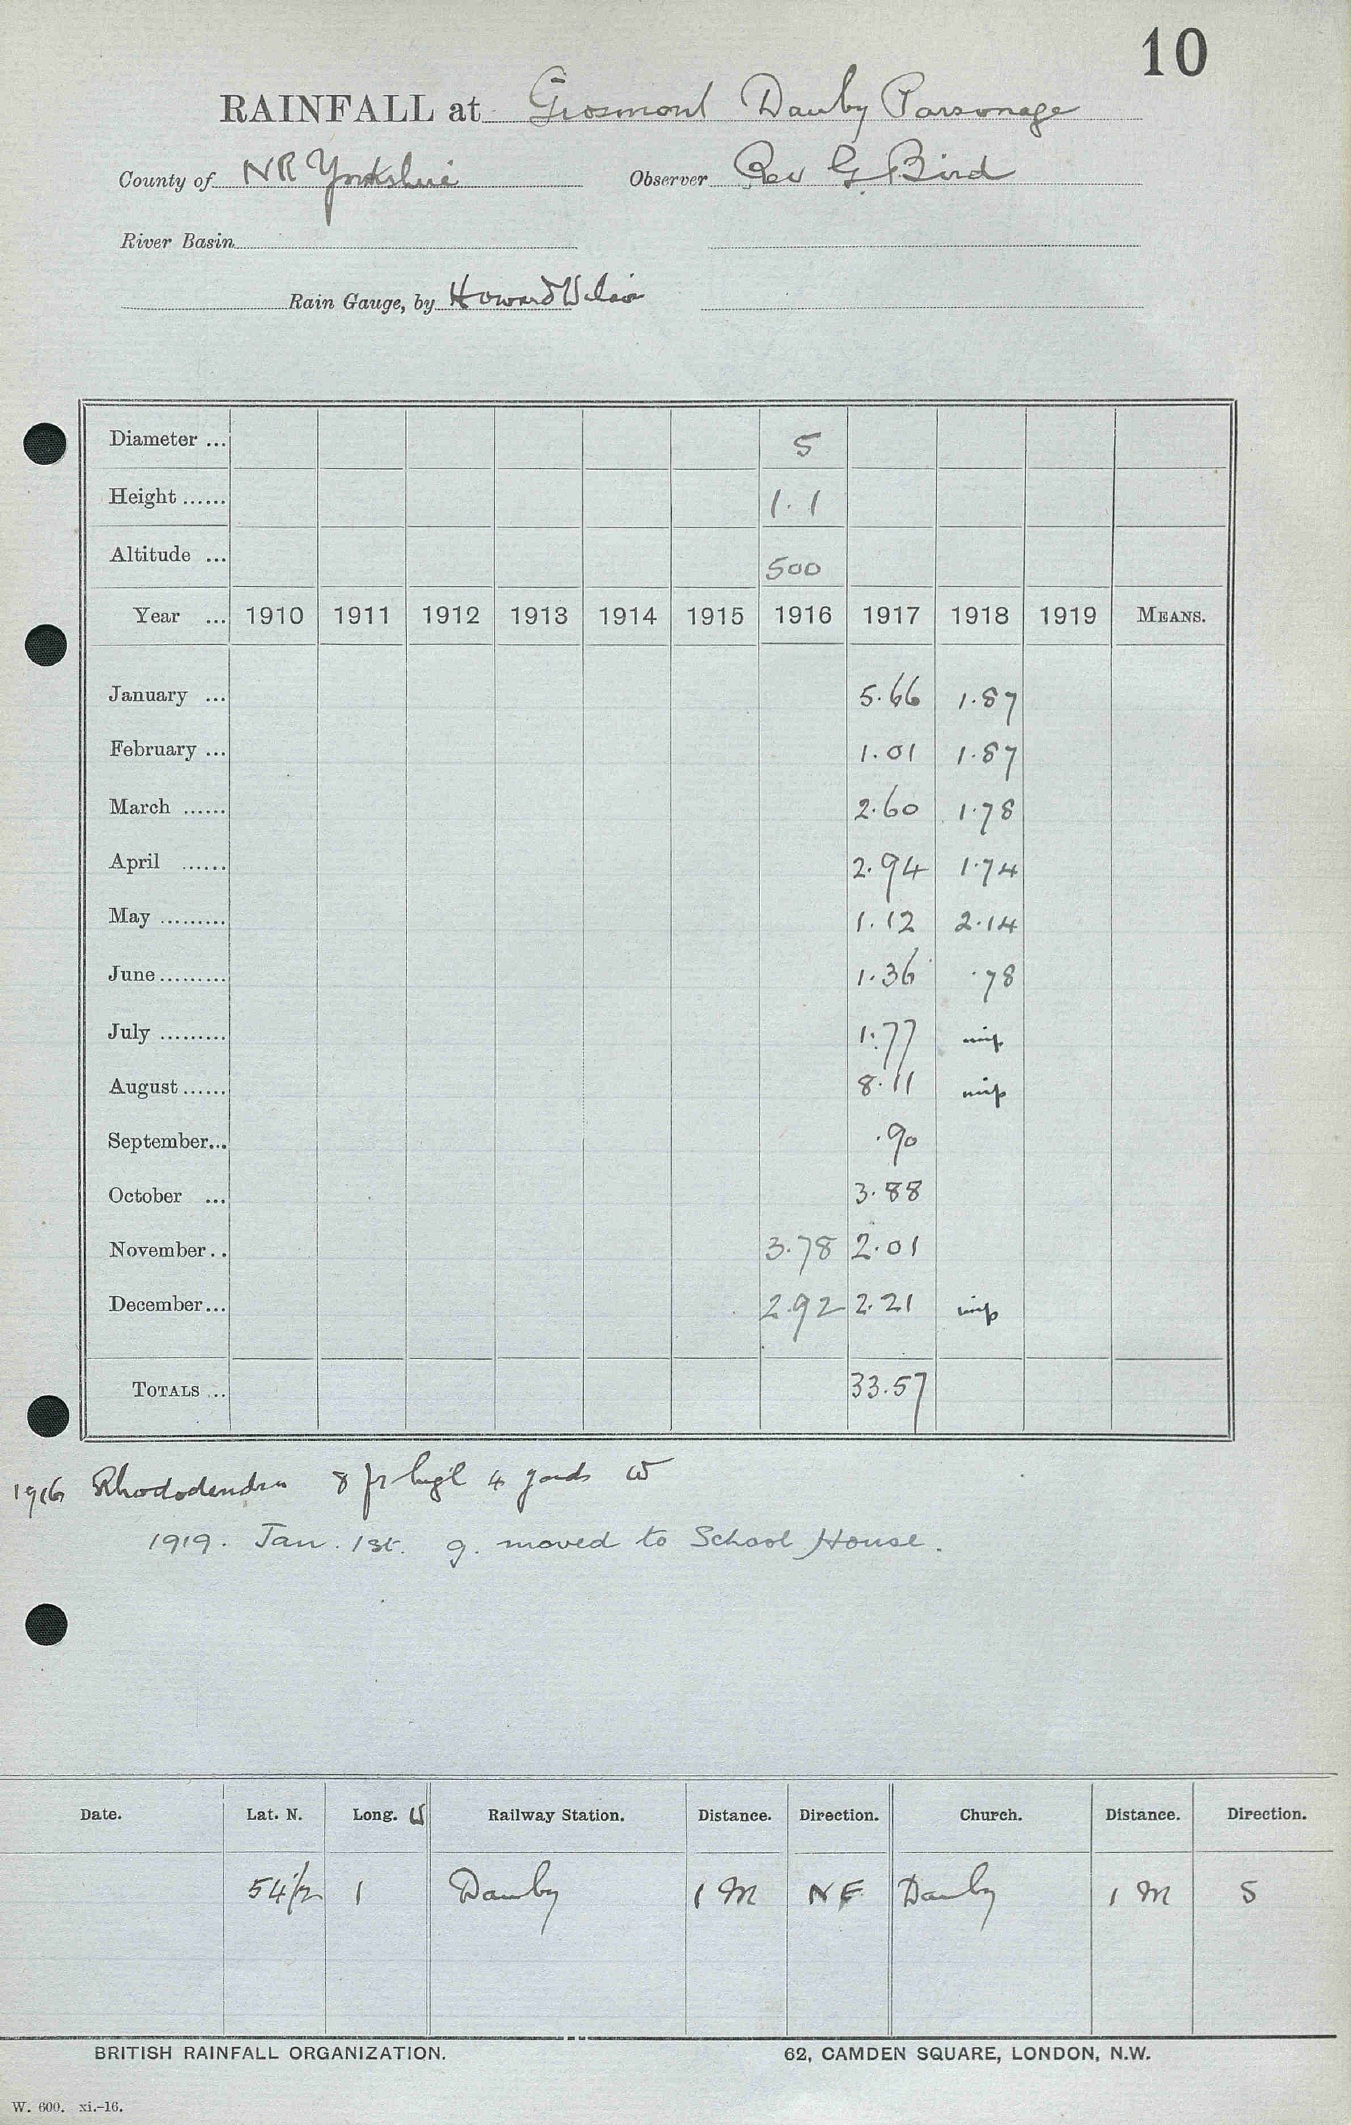 10
RAINFALL at Grosmont Danby Parsonage
County of NR Yorkshire Observer Rev G. Bird
River Basin
Rain Gauge, by Howard Wilson
Diameter ... 5
Height ...... 1.1
Altitude ... 500
Year ... 1910 1911 1912 1913 1914 1915 1916 1917 1918 1919 MEANS.
January ... 5.66 1.87
February ... 1.01 1.87
March ...... 2.60 1.78
April ...... 2.94 1.74
May ......... 1.12 2.14
June ......... 1.36 .78
July ......... 1.77
August ...... 8.11
September... .90
October ... 3.88
November .. 3.78 2.01
December... 2.92 2.21
TOTALS ... 33.57
1916 Rhododendron 8 ft high 4 yards W
1919. Jan. 1st. g. moved to School House.
Date. Lat. N. Long. W Railway Station. Distance. Direction. Church. Distance. Direction.
54 1/2 1 Danby 1 M NE Danby 1 M S
BRITISH RAINFALL ORGANIZATION. 62, CAMDEN SQUARE, LONDON, N.W.
W. 600. xi.-16.